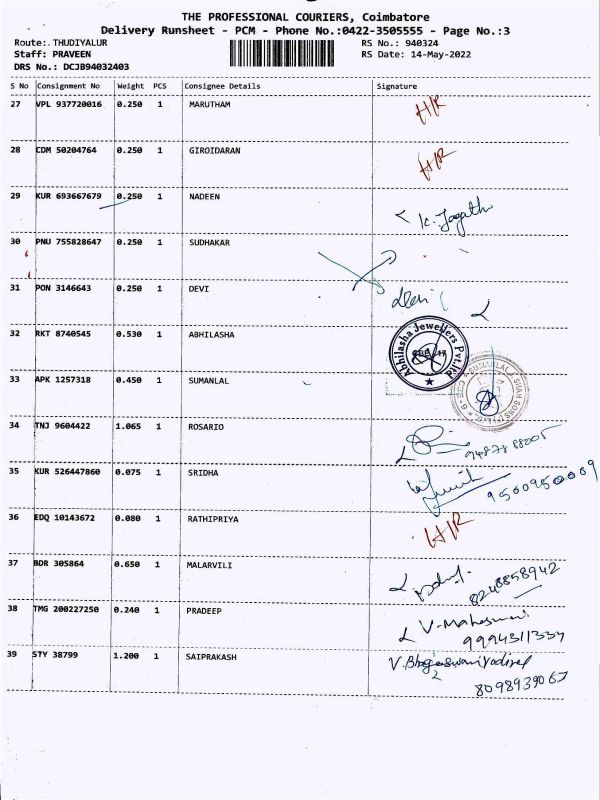 THE PROFESSIONAL COURIERS, Coimbatore
Delivery Runsheet - PCM - Phone No.:0422-3505555 - Page No.:3
Route:. THUDIYALUR RS No.: 940324
Staff: PRAVEEN RS Date: 14-May-2022
DRS No.: DCJB94032403
S No Consignment No Weight PCS Consignee Details Signature
27 VPL 937720016 0.250 1 MARUTHAM H/R
28 CDM 50204764 0.250 1 GIROIDARAN H/R
29 KUR 693667679 0.250 1 NADEEN K. Jagath
30 PNU 755828647 0.250 1 SUDHAKAR
31 PON 3146643 0.250 1 DEVI Devi
32 RKT 8740545 0.530 1 ABHILASHA Abhilasha Jewellers Pvt.Ltd
33 APK 1257318 0.450 1 SUMANLAL
34 TNJ 9604422 1.065 1 ROSARIO
35 KUR 526447860 0.075 1 SRIDHA 9500950009
36 EDQ 10143672 0.080 1 RATHIPRIYA H/R
37 BDR 305864 0.650 1 MALARVILI 8248858942
38 TMG 200227250 0.240 1 PRADEEP V-Maheswari
9994311334
39 STY 38799 1.200 1 SAIPRAKASH
8098939067